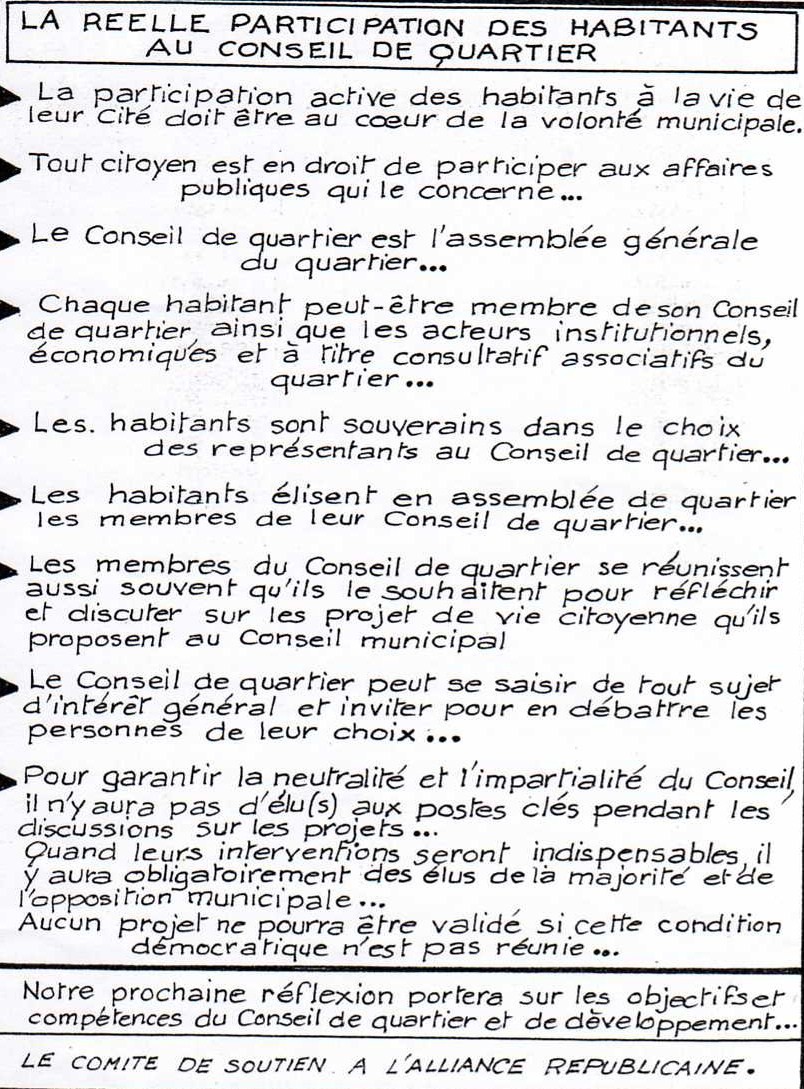 LA REELLE PARTICIPATION DES HABITANTS
AU CONSEIL DE QUARTIER
La participation active des habitants à la vie de
leur Cité doit être au cœur de la volonté municipale.
Tout citoyen est en droit de participer aux affaires
publiques qui le concerne...
Le Conseil de quartier est l'assemblée générale
du quartier...
Chaque habitant peut-être membre de son Conseil
de quartier, ainsi que les acteurs institutionnels,
économiques et à titre consultatif associatifs du
quartier...
Les. habitants sont souverains dans le choix
des représentants au Conseil de quartier...
Les habitants élisent en assemblée de quartier
les membres de leur Conseil de quartier...
Les membres du Conseil de quartier se réunissent
aussi souvent qu'ils le souhaitent pour réfléchir
et discuter sur les projet de vie citoyenne qu'ils
proposent au Conseil municipal
Le Conseil de quartier peut se saisir de tout sujet
d'intérêt général et inviter pour en débattre les
personnes de leur choix...
Pour garantir la neutralité et l'impartialité du Conseil,
il n'y aura pas d'élu(s) aux postes clés pendant les
discussions sur les projets...
Quand leurs interventions seront indispensables, il
y aura obligatoirement des élus de la majorité et de
l'opposition municipale...
Aucun projet ne pourra être validé si cette condition
démocratique n'est pas réunie...
Notre prochaine réflexion portera sur les objectifs et
compétences du Conseil de quartier et de développement...
LE COMITE DE SOUTIEN A L'ALLIANCE REPUBLICAINE.